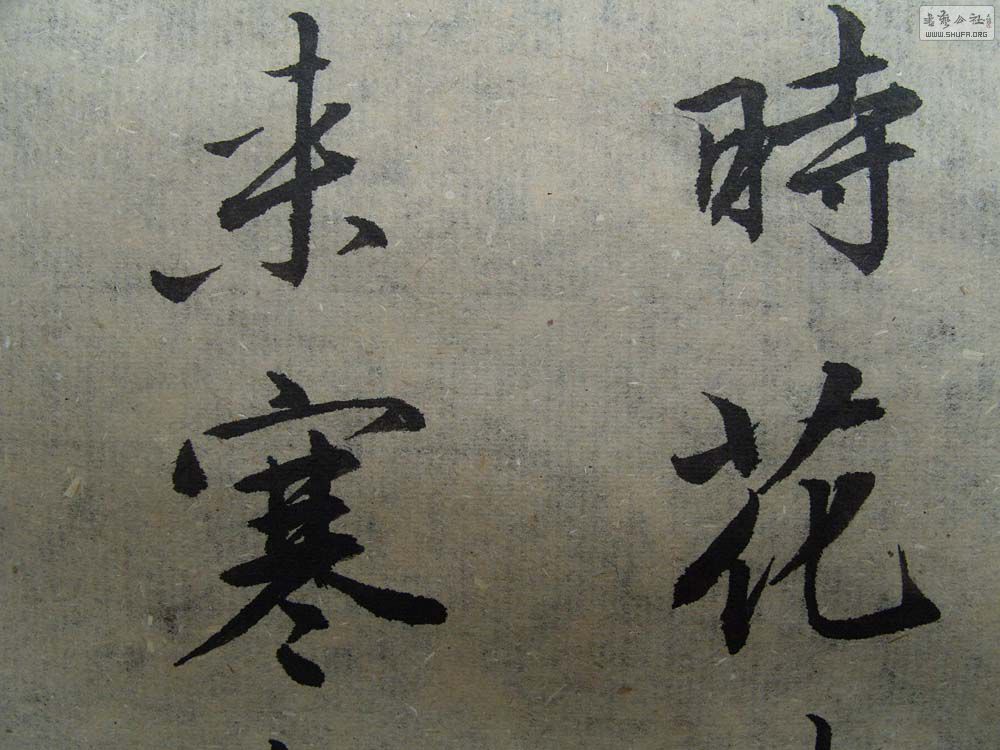 時花
来寒
書藝公社
WWW.SHUFA.ORG